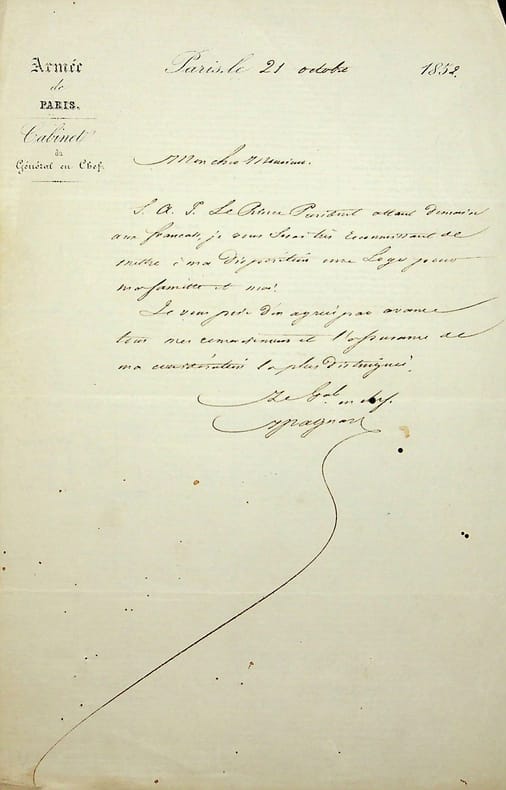 Armée
de
PARIS.
Cabinet
du
Général en Chef.
Paris, le 21 octobre 1852.
Mon cher Monsieur.
S. A. I. Le Prince Président allant demain
aux français, je vous serai très reconnaissant de
mettre à ma disposition une Loge pour
ma famille et moi.
Je vous prie d'en agréer par avance
tous mes remerciements et l'assurance de
ma considération la plus distinguée.
Le Gal en chef.
Magnan